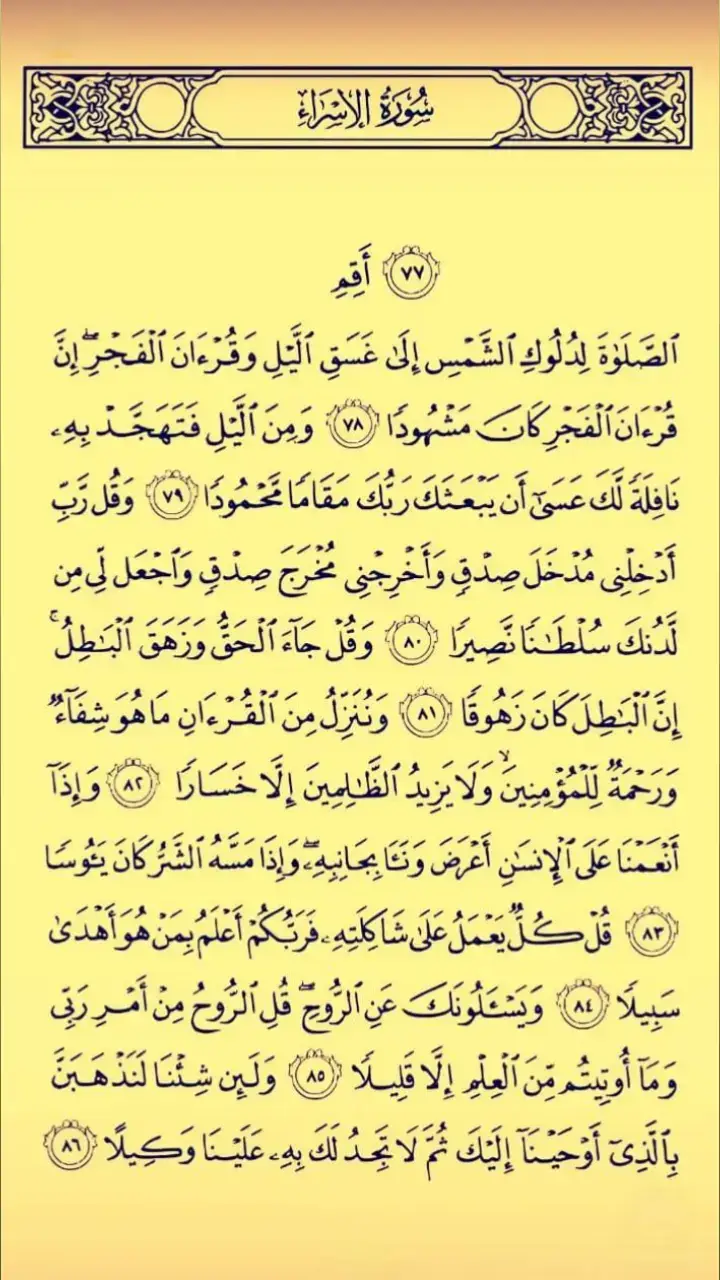 سُورَةُ الإِسْرَاءِ
٧٧ أَقِمِ
ٱلصَّلَوٰةَ لِدُلُوكِ ٱلشَّمْسِ إِلَىٰ غَسَقِ ٱلَّيْلِ وَقُرْءَانَ ٱلْفَجْرِ ۖ إِنَّ
قُرْءَانَ ٱلْفَجْرِ كَانَ مَشْهُودًا ٧٨ وَمِنَ ٱلَّيْلِ فَتَهَجَّدْ بِهِۦ
نَافِلَةً لَّكَ عَسَىٰٓ أَن يَبْعَثَكَ رَبُّكَ مَقَامًا مَّحْمُودًا ٧٩ وَقُل رَّبِّ
أَدْخِلْنِى مُدْخَلَ صِدْقٍ وَأَخْرِجْنِى مُخْرَجَ صِدْقٍ وَٱجْعَل لِّى مِن
لَّدُنكَ سُلْطَـٰنًا نَّصِيرًا ٨٠ وَقُلْ جَآءَ ٱلْحَقُّ وَزَهَقَ ٱلْبَـٰطِلُ ۚ
إِنَّ ٱلْبَـٰطِلَ كَانَ زَهُوقًا ٨١ وَنُنَزِّلُ مِنَ ٱلْقُرْءَانِ مَا هُوَ شِفَآءٌ
وَرَحْمَةٌ لِّلْمُؤْمِنِينَ ۙ وَلَا يَزِيدُ ٱلظَّـٰلِمِينَ إِلَّا خَسَارًا ٨٢ وَإِذَآ
أَنْعَمْنَا عَلَى ٱلْإِنسَـٰنِ أَعْرَضَ وَنَـَٔا بِجَانِبِهِۦ ۖ وَإِذَا مَسَّهُ ٱلشَّرُّ كَانَ يَـُٔوسًا
٨٣ قُلْ كُلٌّ يَعْمَلُ عَلَىٰ شَاكِلَتِهِۦ فَرَبُّكُمْ أَعْلَمُ بِمَنْ هُوَ أَهْدَىٰ
سَبِيلًا ٨٤ وَيَسْـَٔلُونَكَ عَنِ ٱلرُّوحِ ۖ قُلِ ٱلرُّوحُ مِنْ أَمْرِ رَبِّى
وَمَآ أُوتِيتُم مِّنَ ٱلْعِلْمِ إِلَّا قَلِيلًا ٨٥ وَلَئِن شِئْنَا لَنَذْهَبَنَّ
بِٱلَّذِىٓ أَوْحَيْنَآ إِلَيْكَ ثُمَّ لَا تَجِدُ لَكَ بِهِۦ عَلَيْنَا وَكِيلًا ٨٦